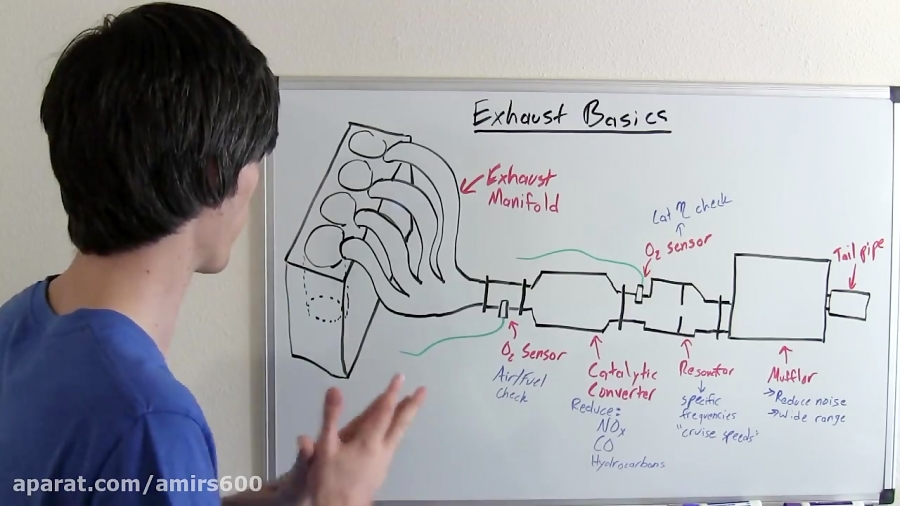 Exhaust Basics
Exhaust
Manifold
Cat η check
O₂ sensor
Tail pipe
O₂ Sensor
Air/Fuel
check
Catalytic
Converter
Reduce:
NOx
CO
Hydrocarbons
Resonator
specific
frequencies
"cruise speeds"
Muffler
→Reduce noise
→wide range
aparat.com/amirs600